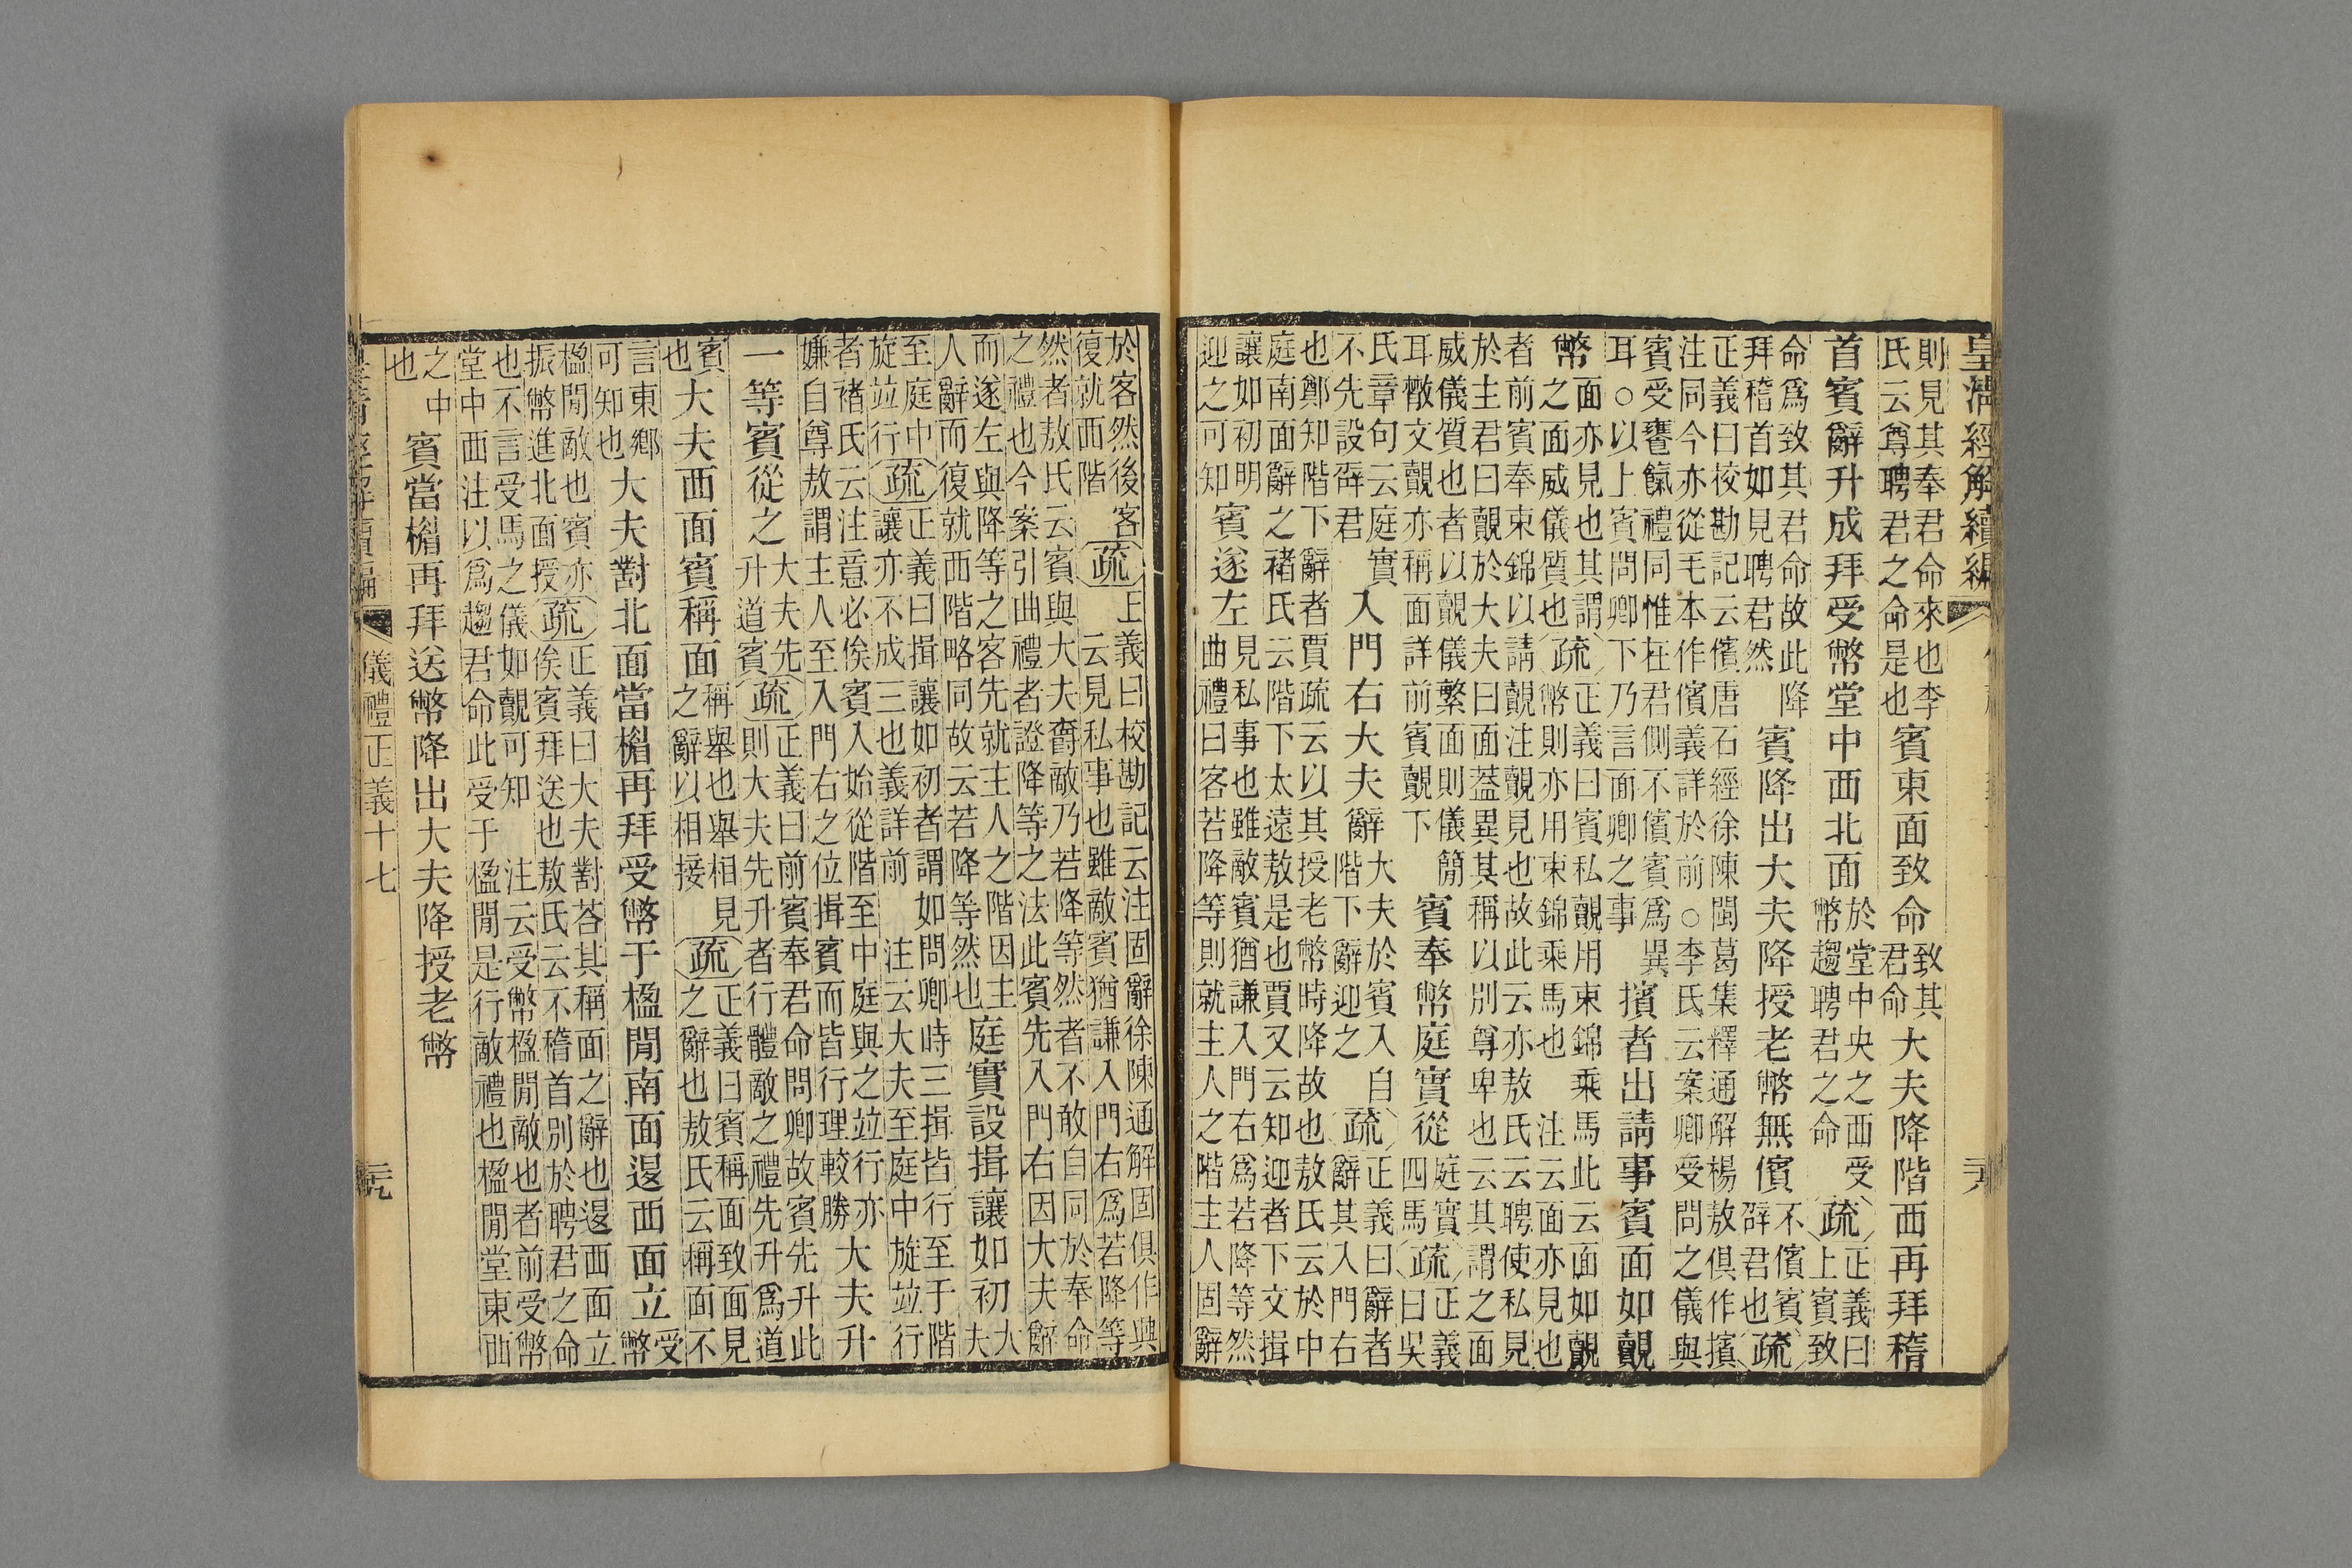 皇清經解續編
則見其奉君命來也李
氏云尊聘君之命是也
賓東面致命
致其
君命
大夫降階西再拜稽
首賓辭升成拜受幣堂中西北面
於堂中央之西受
幣趨聘君之命
疏
正義曰
上賓致
命爲致其君命故此降
拜稽首如見聘君然
賓降出大夫降授老幣無儐
不儐賓
辟君也
疏
正義曰校勘記云儐唐石經徐陳閩葛集釋通解楊敖俱作擯
注同今亦從毛本作儐義詳於前○李氏云案卿受問之儀與
賓受饔餼禮同惟在君側不儐賓爲異
耳○以上賓問卿下乃言面卿之事
擯者出請事賓面如覿
幣
面亦見也其謂
之面威儀質也
疏
正義曰賓私覿用束錦乘馬此云面如覿
幣則亦用束錦乘馬也 注云面亦見也
者前賓奉束錦以請覿注覿見也故此云亦敖氏云聘使私見
於主君曰覿於大夫曰面葢異其稱以別尊卑也云其謂之面
威儀質也者以覿儀繁面則儀簡
耳散文覿亦稱面詳前賓覿下
賓奉幣庭實從
庭實
四馬
疏
正義
曰吳
氏章句云庭實
不先設辟君
入門右大夫辭
大夫於賓入自
階下辭迎之
疏
正義曰辭者
辭其入門右
也鄭知階下辭者賈疏云以其授老幣時降故也敖氏云於中
庭南面辭之褚氏云階下太遠敖是也賈又云知迎者下文揖
讓如初明
迎之可知
賓遂左
見私事也雖敵賓猶謙入門右爲若降等然
曲禮曰客若降等則就主人之階主人固辭
於客然後客
復就西階
疏
正義曰校勘記云注固辭徐陳通解固俱作典
云見私事也雖敵賓猶謙入門右爲若降等
然者敖氏云賓與大夫齊敵乃若降等然者不敢自同於奉命
之禮也今案引曲禮者證降等之法此賓先入門右因大夫辭
而遂左與降等之客先就主人之階因主
人辭而復就西階略同故云若降等然也
庭實設揖讓如初
大
夫
至庭中
旋竝行
疏
正義曰揖讓如初者謂如問卿時三揖皆行至于階
讓亦不成三也義詳前 注云大夫至庭中旋竝行
者褚氏云注意必俟賓入始從階至中庭與之竝行亦
嫌自尊敖謂主人至入門右之位揖賓而皆行理較勝
大夫升
一等賓從之
大夫先
升道賓
疏
正義曰前賓奉君命問卿故賓先升此
則大夫先升者行體敵之禮先升爲道
賓
也
大夫西面賓稱面
稱舉也舉相見
之辭以相接
疏
正義曰賓稱面致面見
之辭也敖氏云稱面不
言東鄉
可知也
大夫對北面當楣再拜受幣于楹閒南面退西面立
受
幣
楹閒敵也賓亦
振幣進北面授
疏
正義曰大夫對荅其稱面之辭也退西面立
俟賓拜送也敖氏云不稽首別於聘君之命
也不言受馬之儀如覿可知 注云受幣楹閒敵也者前受幣
堂中西注以爲趨君命此受于楹閒是行敵禮也楹閒堂東西
之中
也
賓當楣再拜送幣降出大夫降授老幣
儀禮正義十七